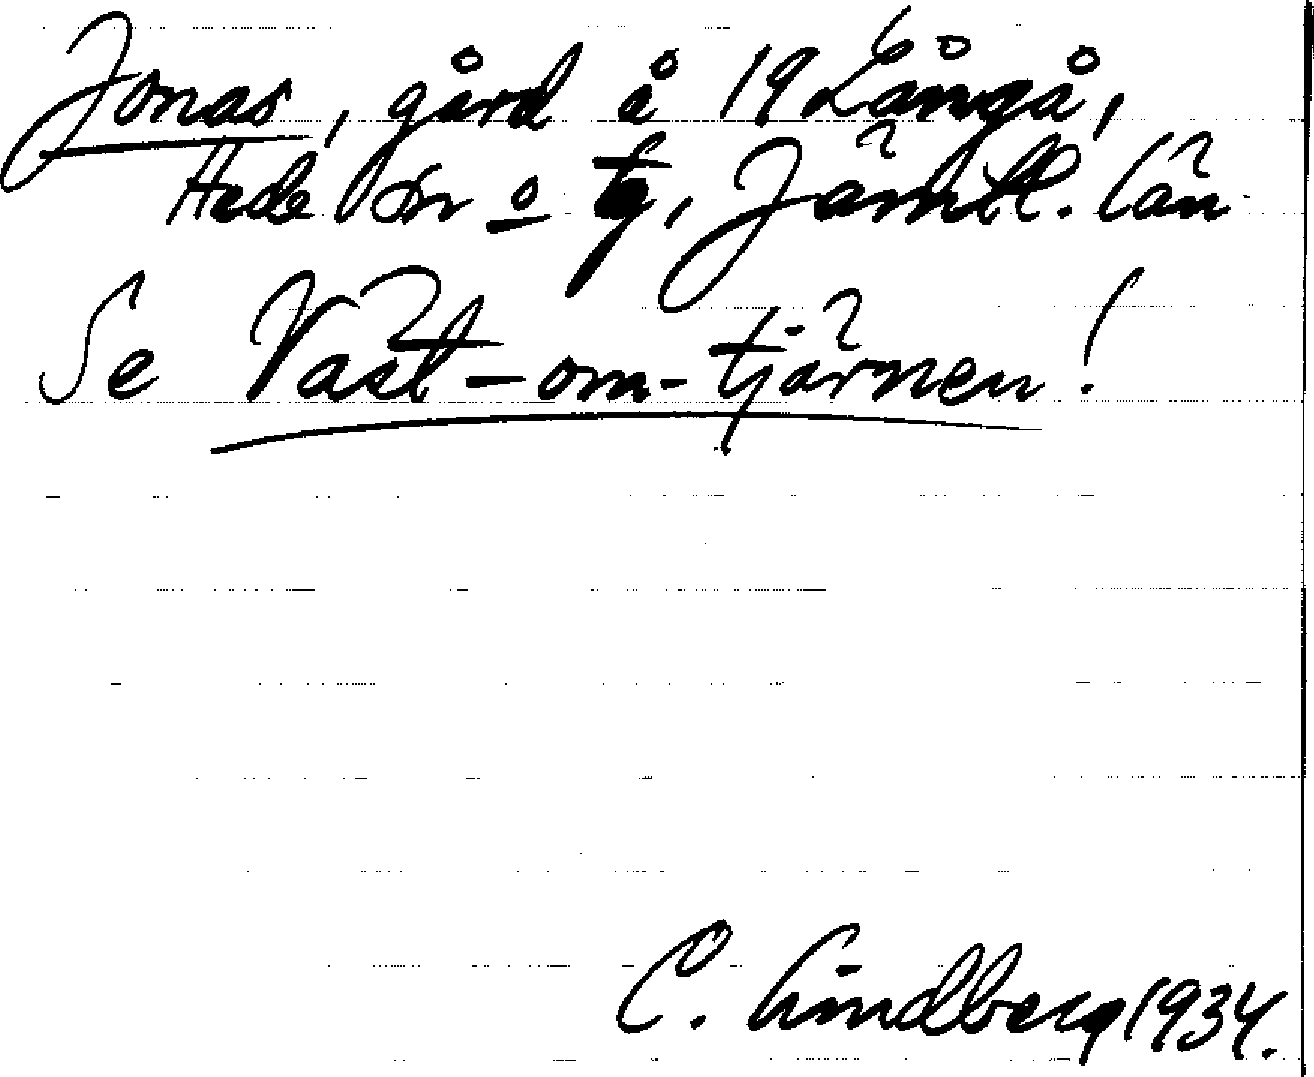 Jonas, gård å 19 Långå,
Hede sn o tg, Jämtl. län
Se Väst-om-tjärnen!
C. Lindberg 1934.